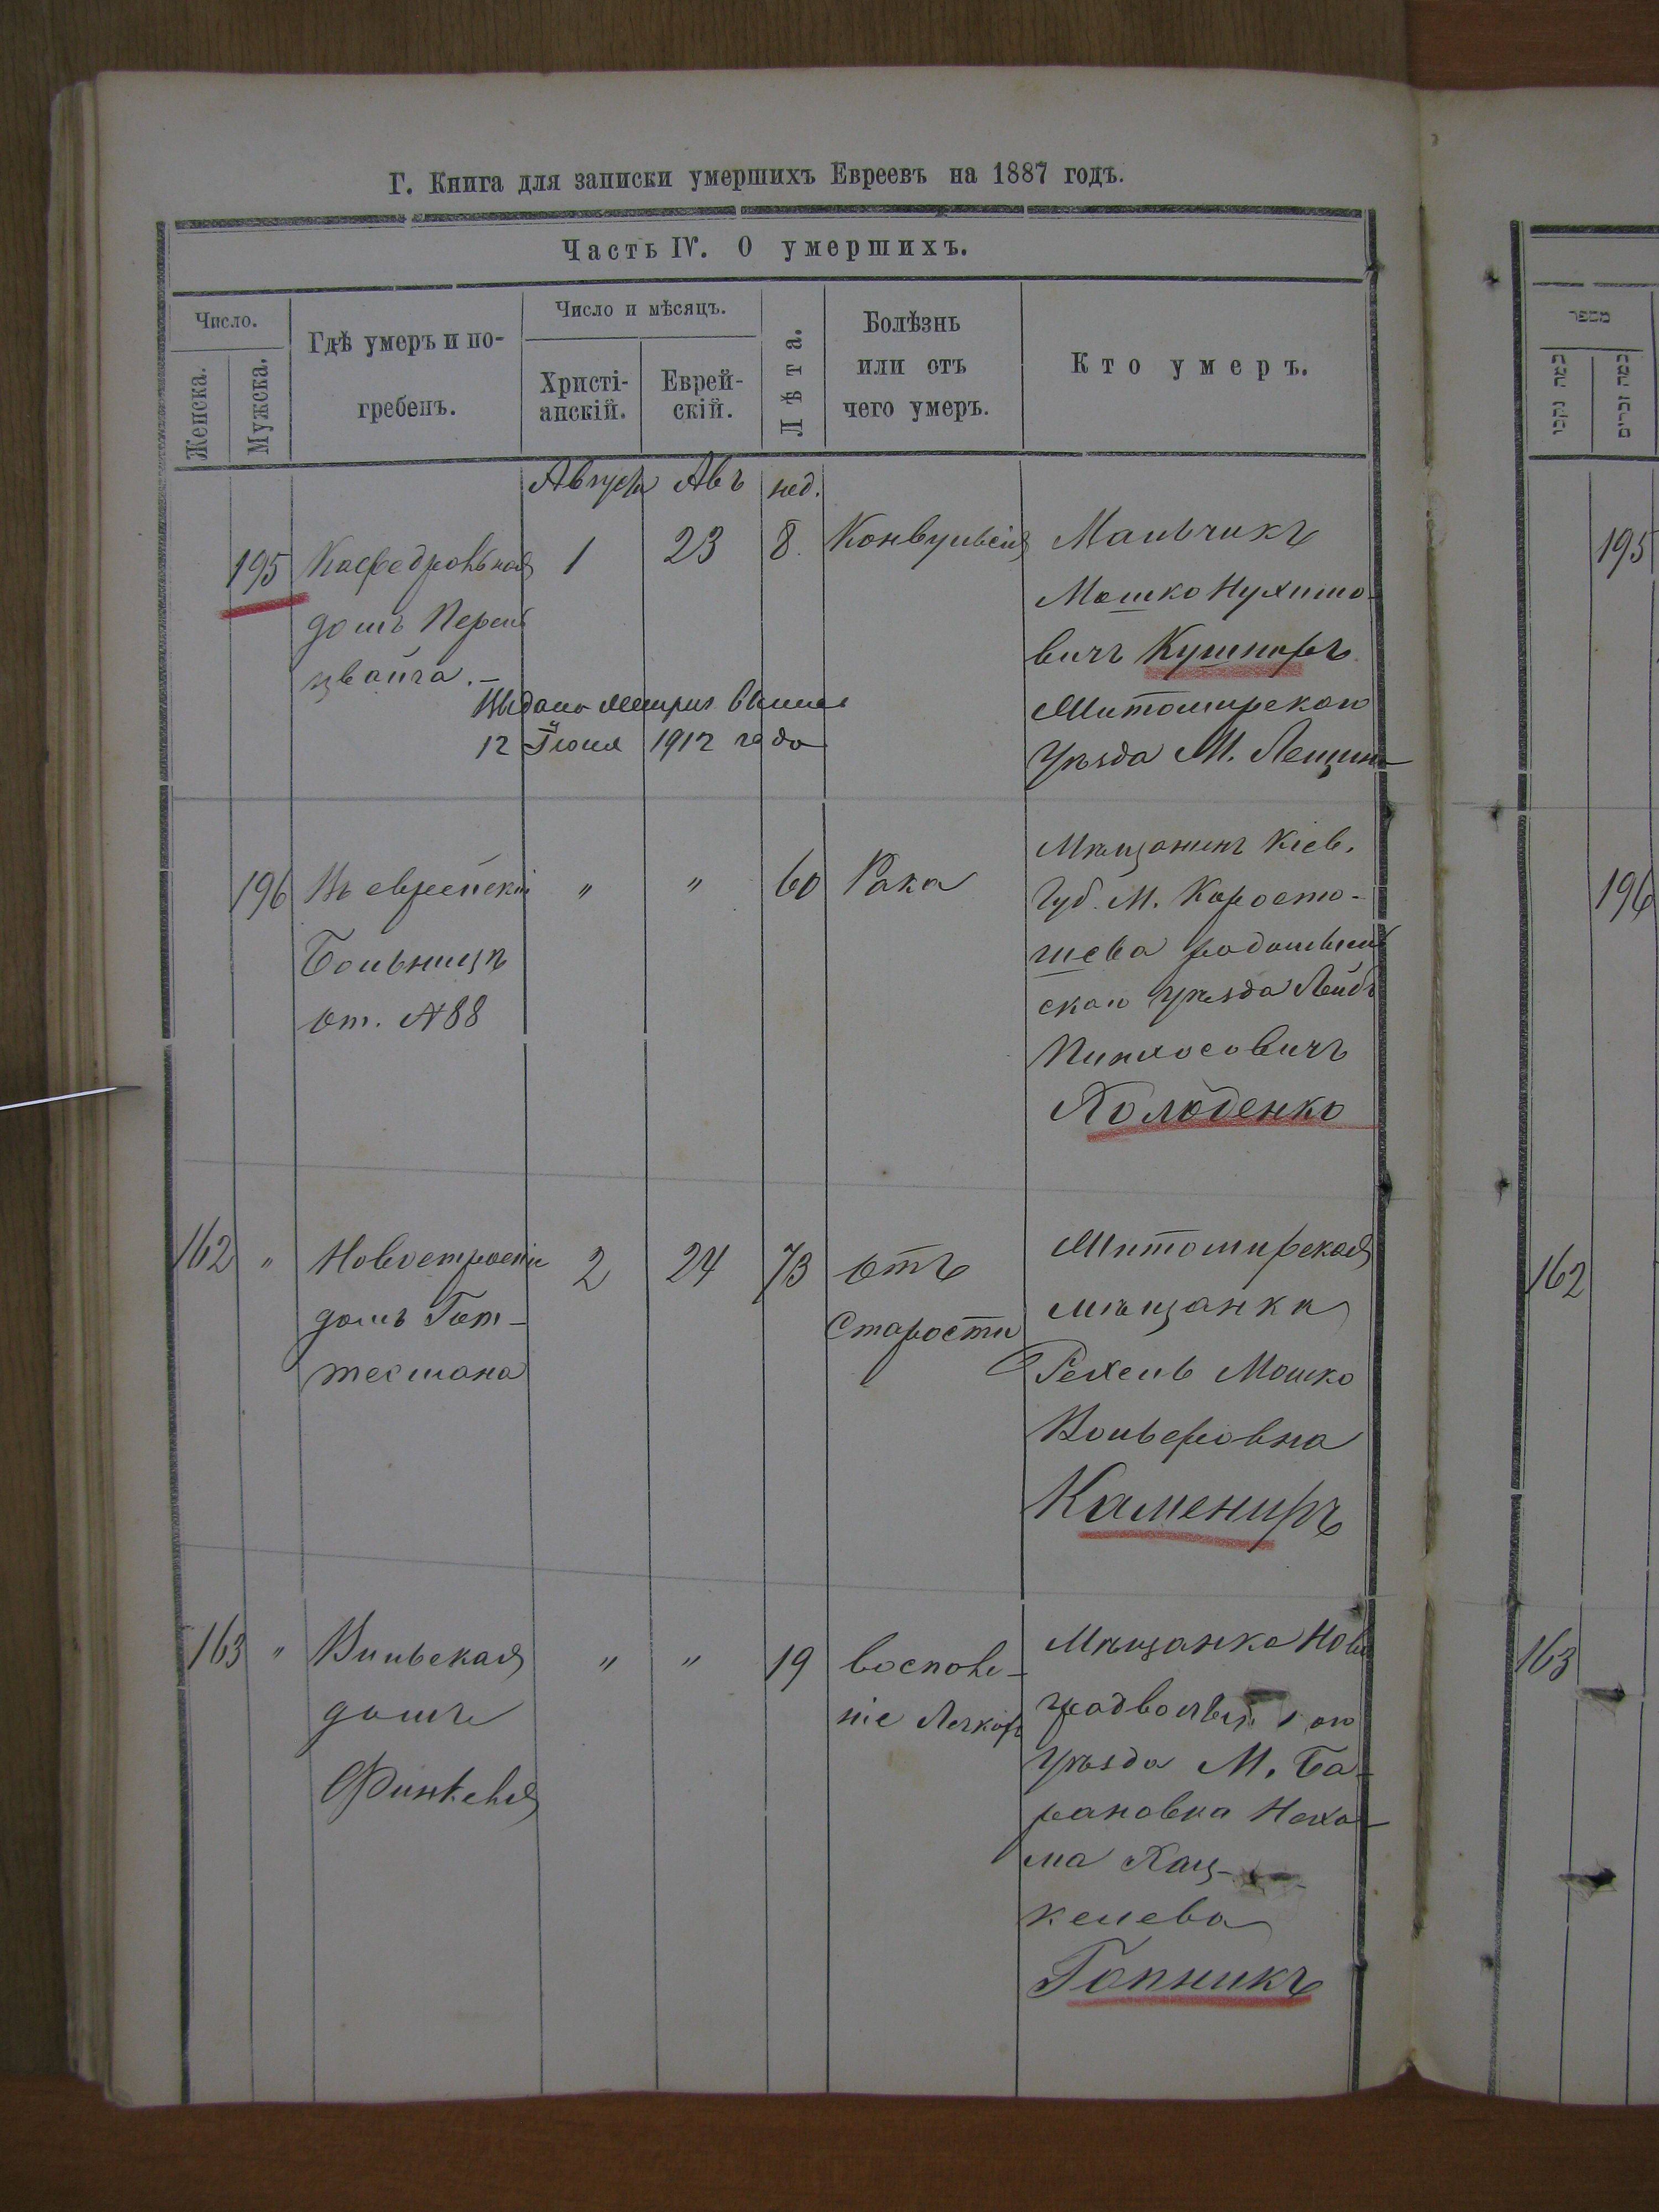 Г. Книга для записки умершихъ Евреевъ на 1887 годъ.
Часть IV. О умершихъ.
Число.
Женска.
Мужска.
Гдѣ умеръ и по-
гребенъ.
Число и мѣсяцъ.
Христі-
анскій.
Еврей-
скій.
Лѣта.
Болѣзнь
или отъ
чего умеръ.
Кто умеръ.
Августа Авъ нед.
195
Кафедральная
домъ Перель
цвайга.
1
23
8.
Конвульсія
Мальчикъ
Мошко Нухимо-
вичъ Кушниръ
Житомирскаго
Уѣзда М. Лещин
Выдано метрич.
12 Іюня 1912 года
196
Въ еврейской
Больницѣ
от. №88
"
"
60
Рака
Мѣщанинъ Кіев.
Губ. М. Коросты-
шева радомысль
скаго Уѣзда Лейбъ
Пинхосовичъ
Холоденко
162
"
Новостроеніе
домъ Гот-
тесмана
2
24
73
отъ
Старости
Житомирская
мѣщанка
Рехель Мошко
Вольфовна
Камениръ
163
"
Вильская
домъ
Финкеля
"
"
19
воспале-
ніе Легкихъ
Мѣщанка Нова
градволын
Уѣзда М. Ба-
рановка Неха-
ма Хац-
келева
Гопникъ
מספר
נקבות
זכרים
195
196
162
163